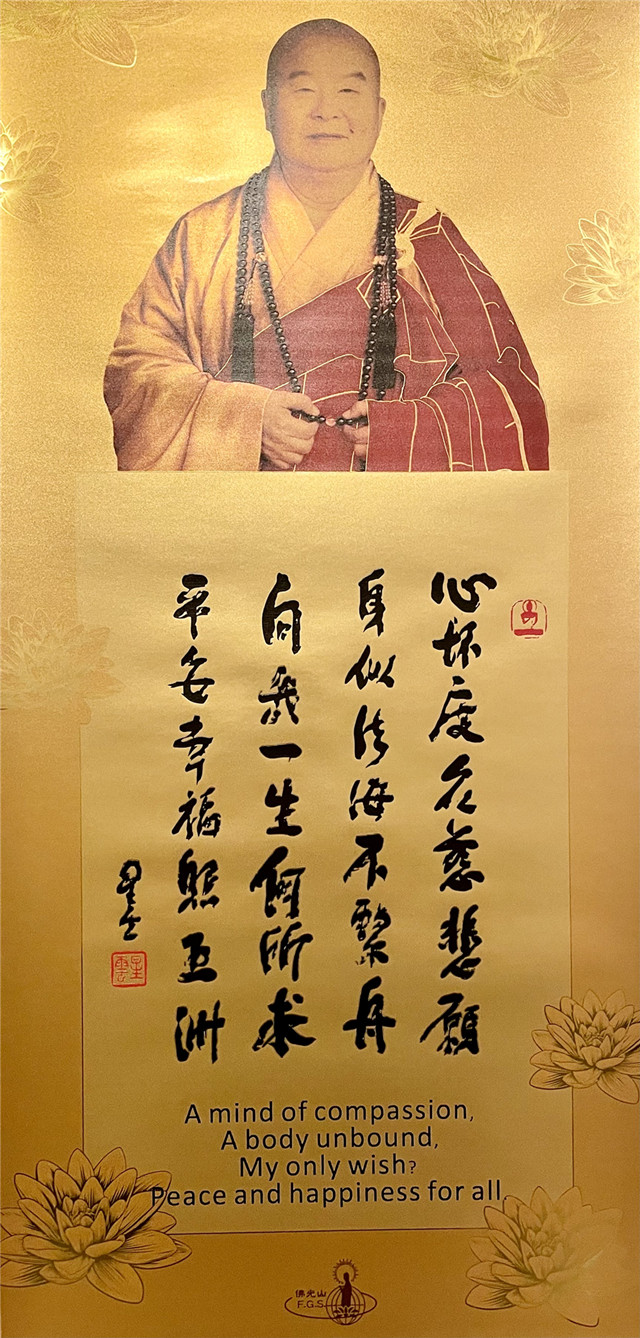 心怀度众慈悲願
身似法海不繫舟
問我一生何所求
平安幸福照五洲
星云
星雲
A mind of compassion,
A body unbound,
My only wish?
Peace and happiness for all.
佛光山
F.G.S.